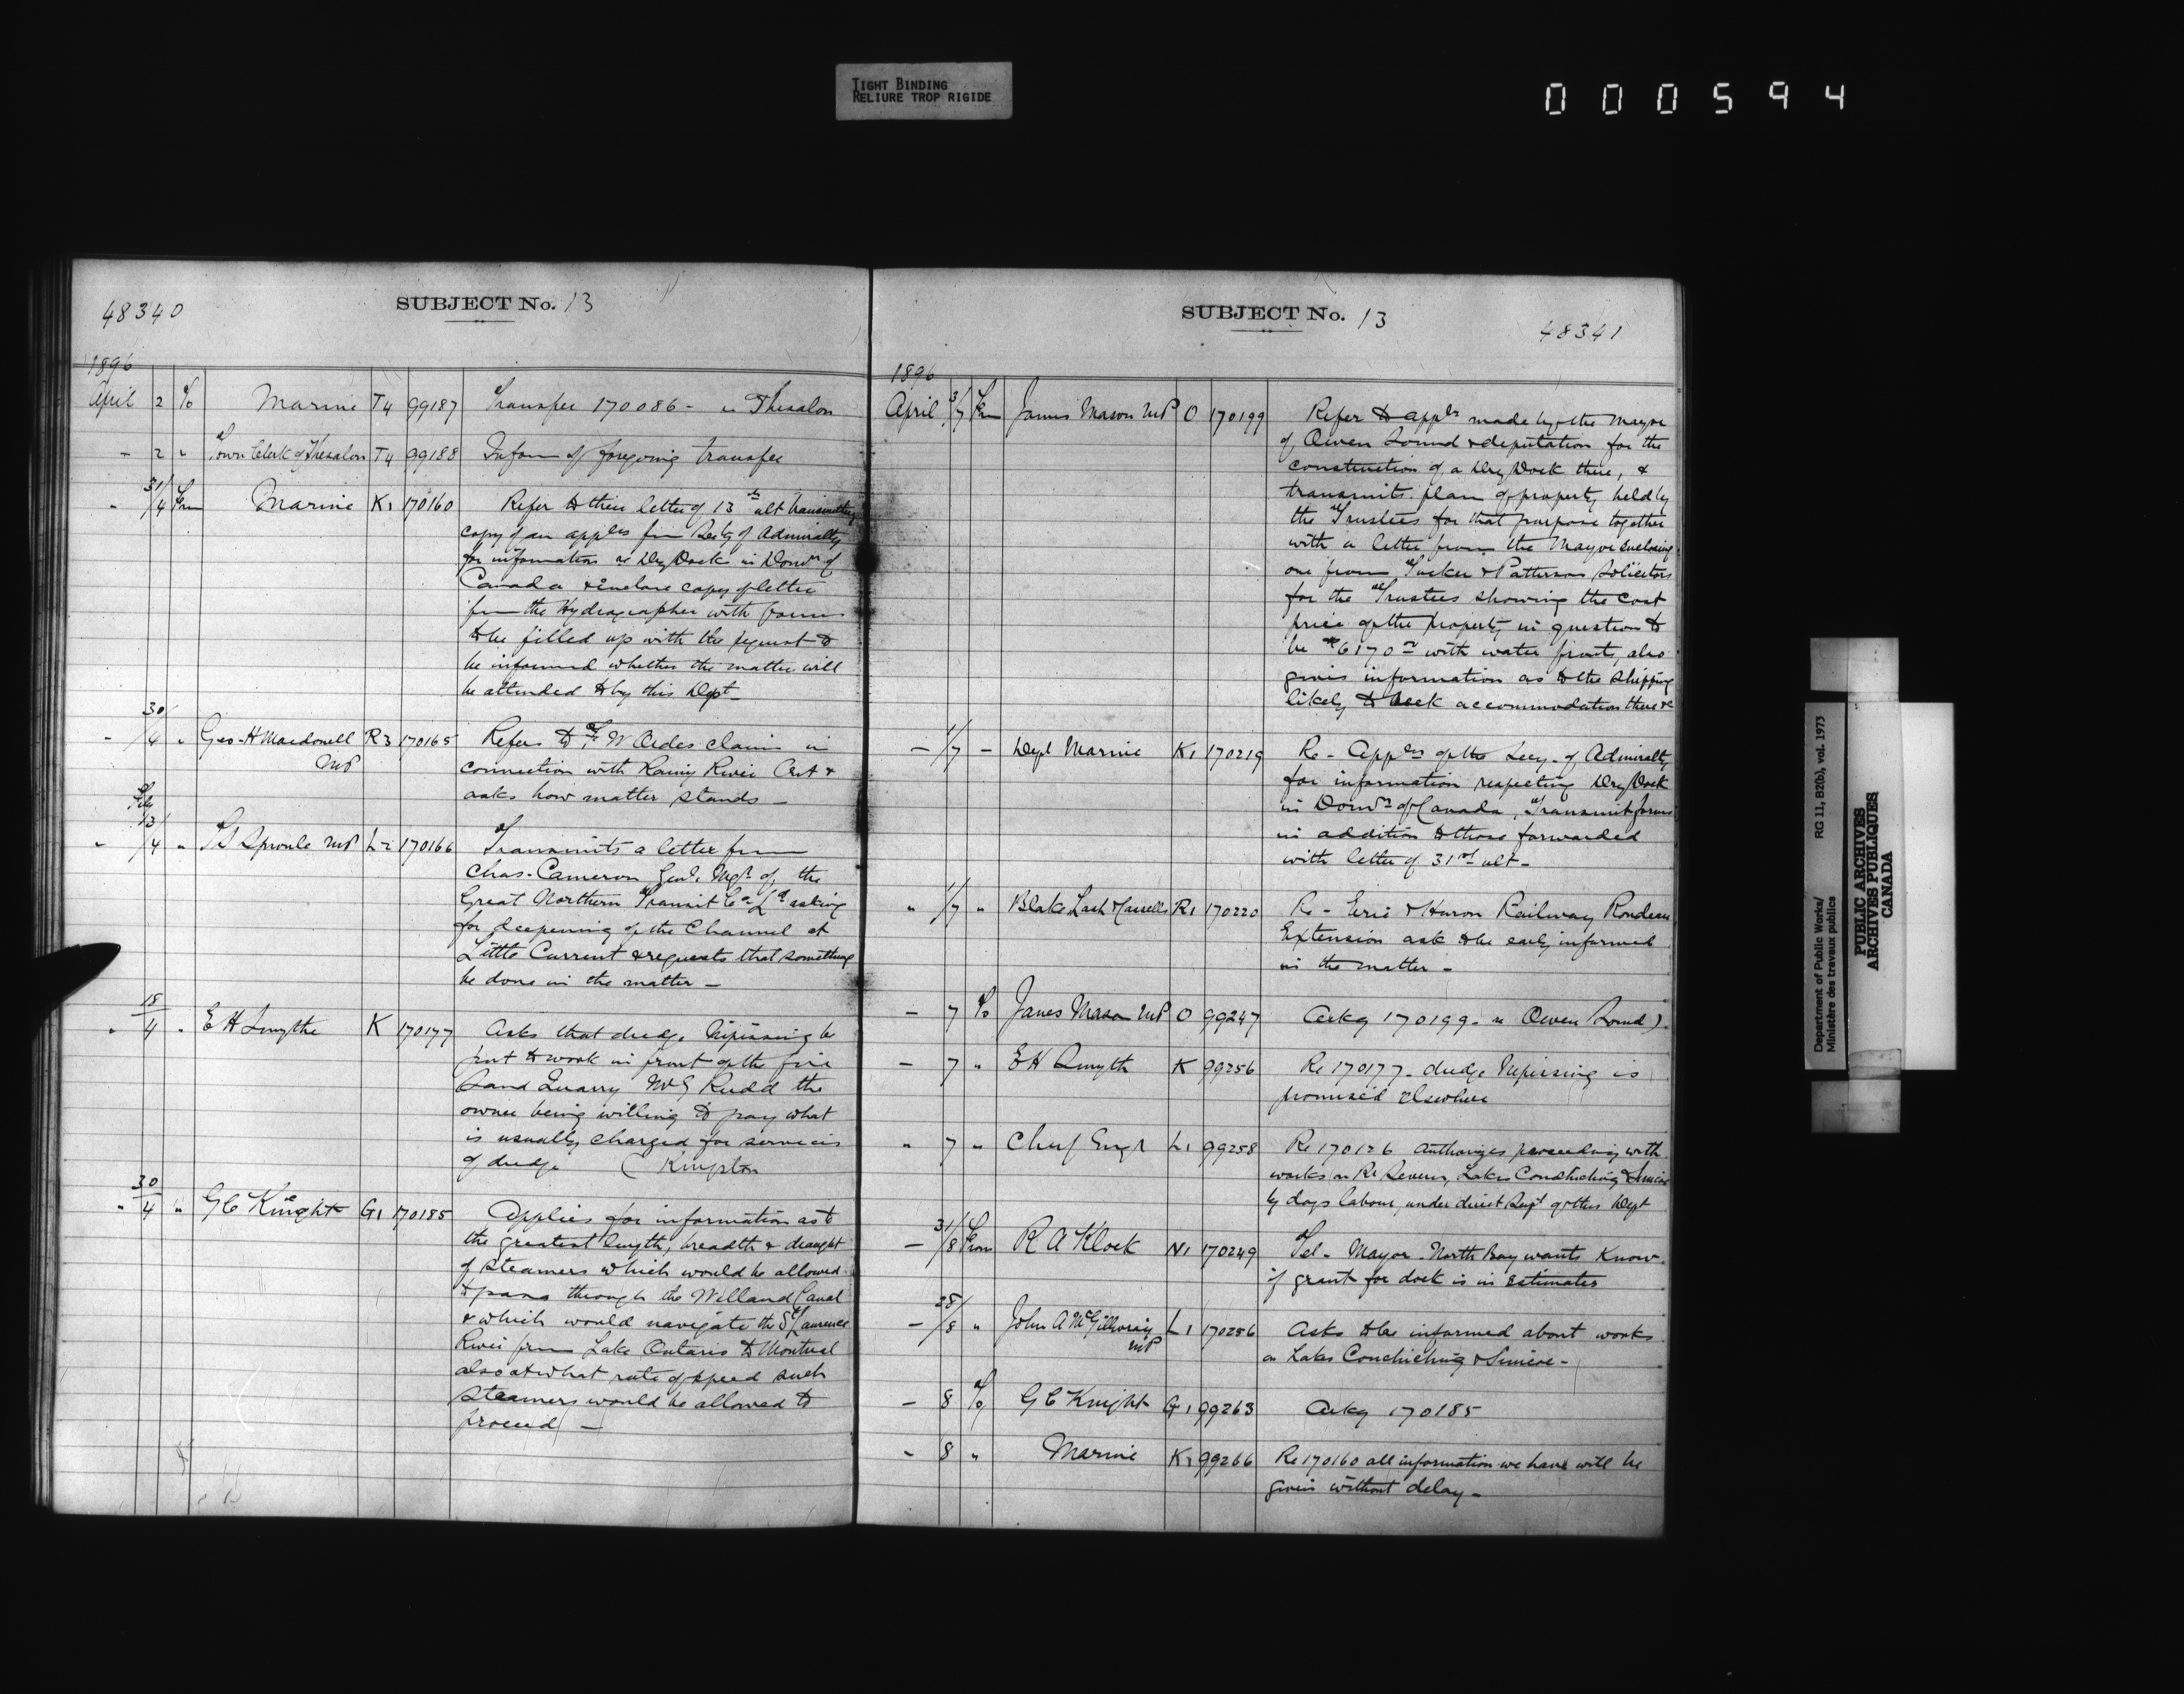 TIGHT BINDING
RELIURE TROP RIGIDE
000594
48340
SUBJECT No. 13
1896
April 2 To Marine T4 99187 Transfer 170086 - re Thesalon
- 2 " Town Clerk of Thesalon T4 99188 Inform of foregoing transfer
" 31/4 Frm Marine K1 170160 Refer to their letter of 13th ult transmitting
copy of an applcn from Secty of Admiralty
for information re Dry Dock in Domn of
Canada & enclose copy of letter
from the Hydrographer with forms
to be filled up with the request to
be informed whether the matter will
be attended to by this Dept -
- 30/4 " Geo. H Macdonell MP R3 170165 Refers to F. W Ordes claim in
connection with Rainy River &
asks how matter stands -
" 13/4 " T S Sproule MP L2 170166 Transmits a letter from
Chas. Cameron Genl. Mgr. of the
Great Northern Transit Co Ld asking
for deepening of the Channel at
Little Current & requests that something
be done in the matter -
" 18/4 " E H Smythe K 170177 Asks that dredge Nipissing be
put to work in front of the fine
Sand Quarry Mr G Rudd the
owner being willing to pay what
is usually charged for services
of dredge ( Kingston
" 30/4 " G C Knight G1 170185 Applies for information as to
the greatest length, breadth & draught
of steamers which would be allowed
to pass through the Welland Canal
& which would navigate the St Laurence
River from Lake Ontario to Montreal
also at what rate of speed such
steamers would be allowed to
proceed -
SUBJECT No. 13
48341
1896
April 3/7 Frm James Mason MP O 170199 Refer to applcn made by the Mayor
of Owen Sound & deputation for the
construction of a Dry Dock there, &
transmits plan of property held by
the Trustees for that purpose together
with a letter from the Mayor enclosing
one from Tucker & Patterson Solicitors
for the Trustees showing the cost
price of the property in question to
be $6170 with water fronts, also
gives information as to the shipping
likely to seek accommodation there &c
- 1/7 - Dept Marine K1 170219 Re - Applcn of the Secy. of Admiralty
for information respecting Dry Dock
in Domn of Canada, Transmit forms
in addition to those forwarded
with letter of 31st ult -
" 1/7 " Blake Lash & Cassells R1 170220 Re - Erie & Huron Railway Rondeau
Extension ask to be early informed
in the matter -
- 7 To James Mason MP O 99247 Ackg 170199 - re Owen Sound).
- 7 " E H Smyth K 99256 Re 170177 - dredge Nipissing is
promised elsewhere
" 7 " Chief Engr L1 99258 Re 170176 Authorizes proceeding with
works on Re Severn, Lakes Couchiching & Simcoe
by days labour, under direct Supt of this Dept
- 31/8 From R A Klock N1 170249 Tel - Mayor - North Bay wants know
if grant for dock is in estimates
- 28/8 " John A McGillivray MP L1 170256 Asks to be informed about works
on Lakes Couchiching & Simcoe -
- 8 To G C Knight G1 99263 Ackg 170185
- 8 " Marine K1 99266 Re 170160 all information we have will be
given without delay -
Department of Public Works/ RG 11, B2(b), vol. 1973
Ministère des travaux publics
PUBLIC ARCHIVES
ARCHIVES PUBLIQUES
CANADA